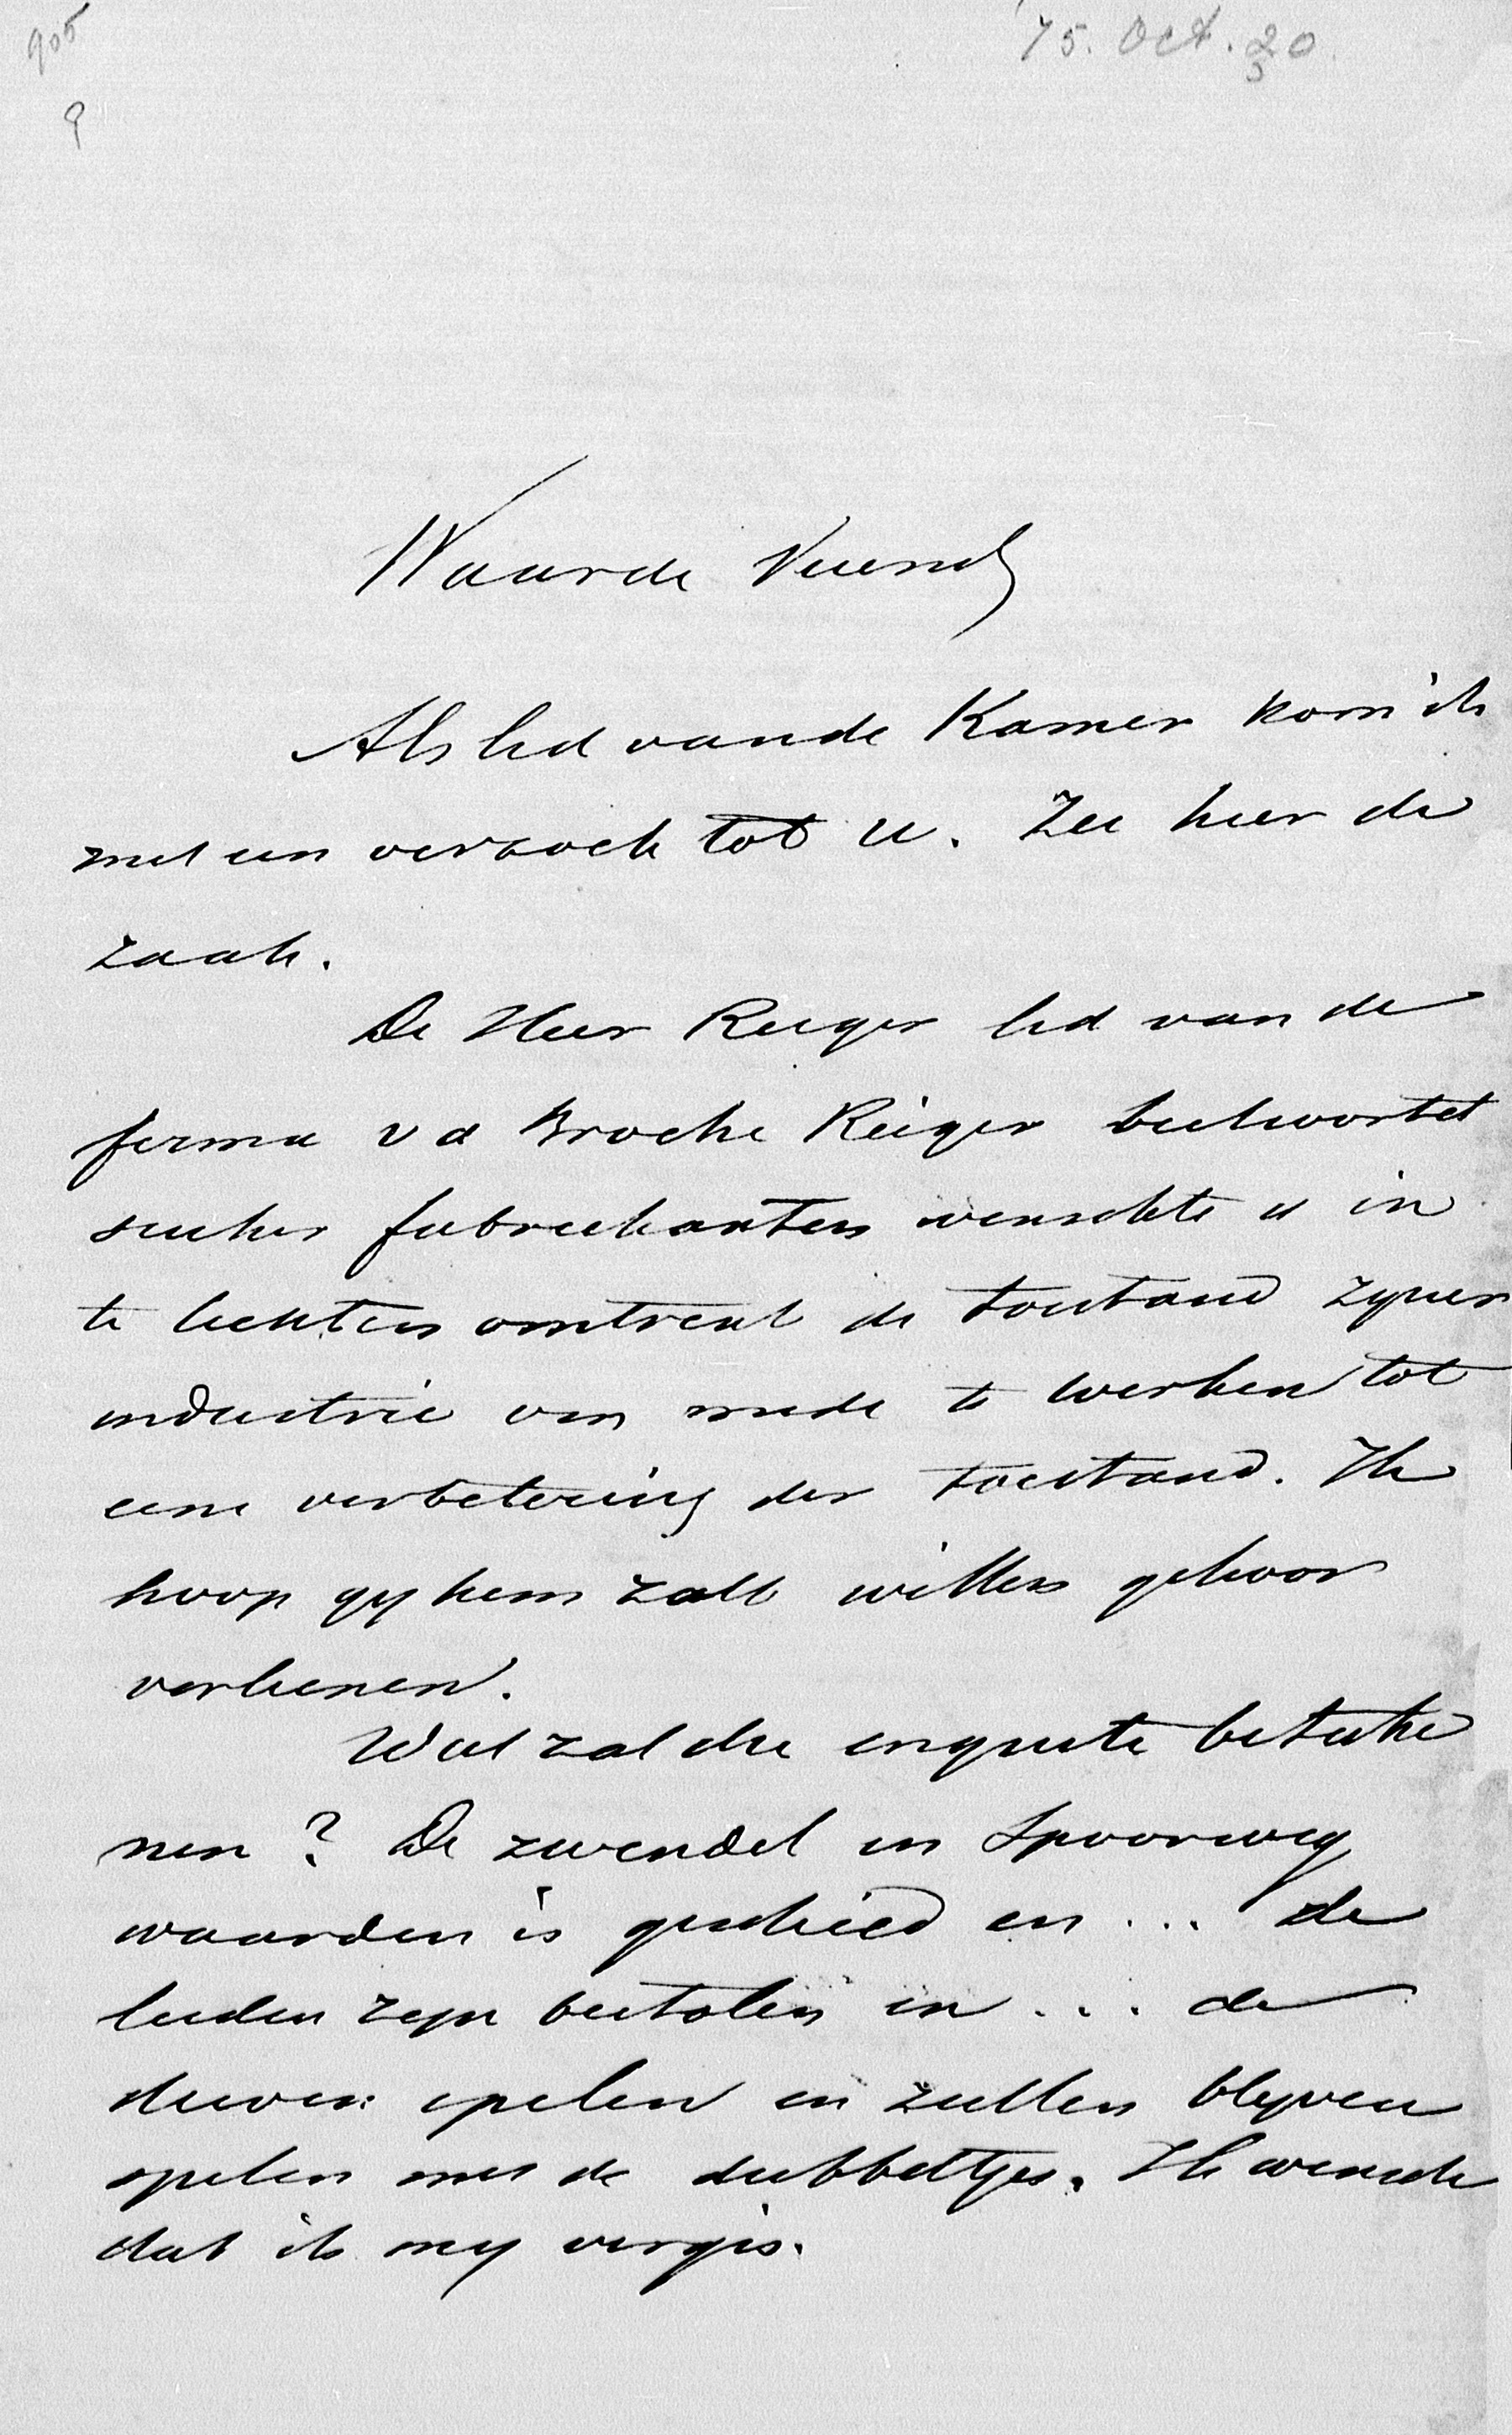 905
9
'75. Oct. 20
Waarde Vriend
Als lid van de Kamer kom ik
met een verzoek tot U. Zie hier de
zaak.
De Heer Reiger lid van de
firma v d Broeke Reiger beetwortel
suiker fabriekanten wenschte u in
te lichten omtrent de toestand zyner
industrie om mede te werken tot
eene verbetering der toestand. Ik
hoop gy hem zult willen gehoor
verlienen.
Wat zal die enquete beteke
nen? De zwendel in Spoorweg
waarden is geschied en ... de
lieden zyn bestolen en ... de
dieven spelen en zullen blyven
spelen met de dubbeltjes. Ik wensch
dat ik my vergis.